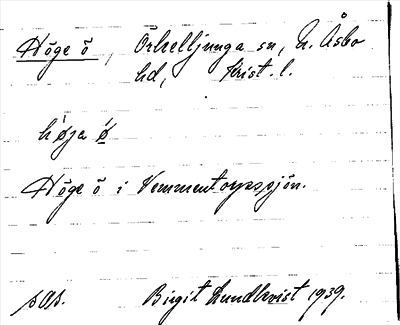 Höge ö, Örkelljunga sn, N. Åsbo
hd, Krist. l.
høja ø
Höge ö i Vemmentorpssjön.
sas. Birgit Lundkvist 1939.